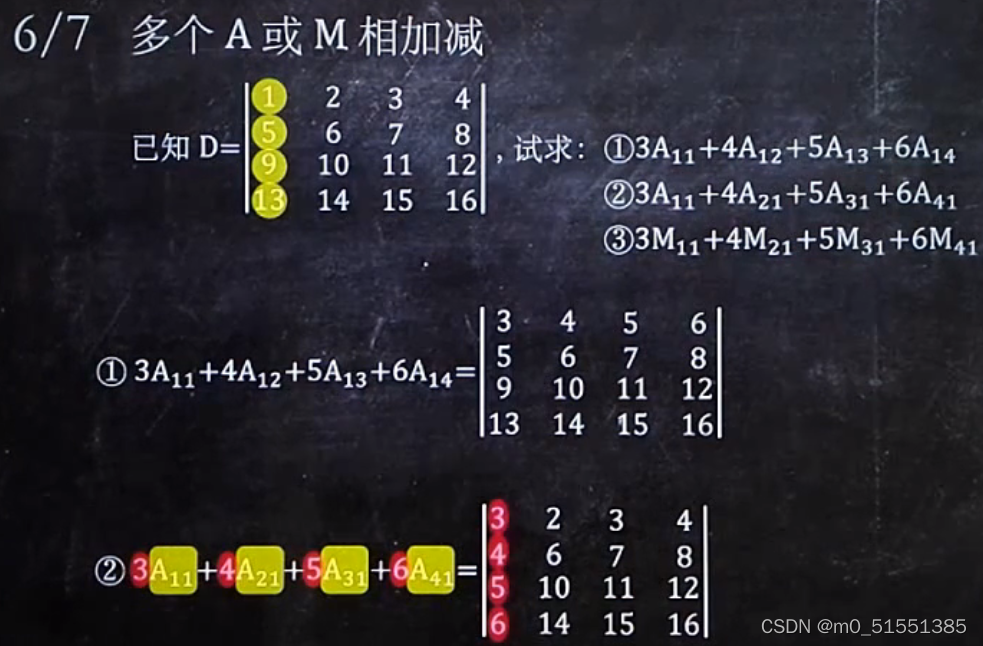 6/7 多个 A 或 M 相加减
已知 D=
1 2 3 4
5 6 7 8
9 10 11 12
13 14 15 16
, 试求: ①3A₁₁+4A₁₂+5A₁₃+6A₁₄
②3A₁₁+4A₂₁+5A₃₁+6A₄₁
③3M₁₁+4M₂₁+5M₃₁+6M₄₁
① 3A₁₁+4A₁₂+5A₁₃+6A₁₄=
3 4 5 6
5 6 7 8
9 10 11 12
13 14 15 16
② 3A₁₁+4A₂₁+5A₃₁+6A₄₁=
3 2 3 4
4 6 7 8
5 10 11 12
6 14 15 16
CSDN @m0_51551385